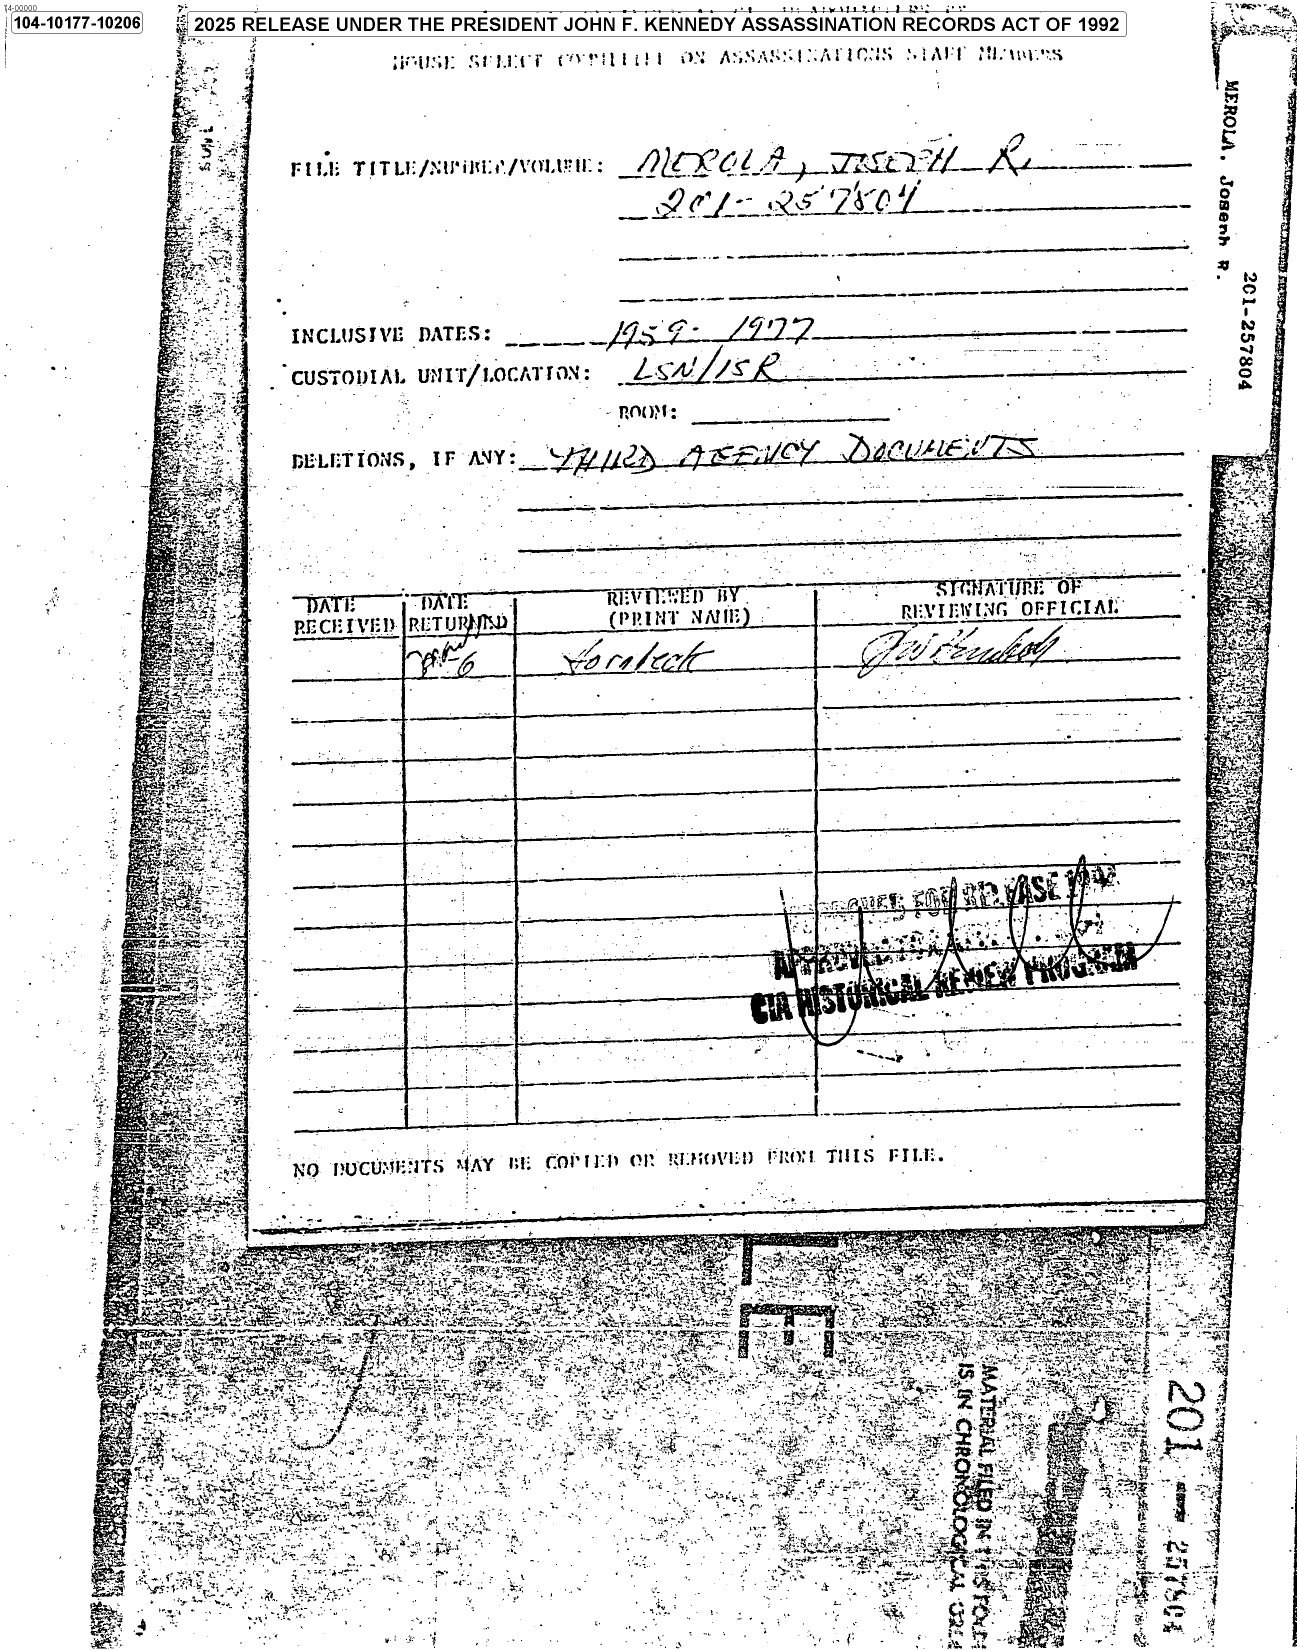 14-00000
104-10177-10206
2025 RELEASE UNDER THE PRESIDENT JOHN F. KENNEDY ASSASSINATION RECORDS ACT OF 1992
HOUSE SELECT COMMITTEE ON ASSASSINATIONS STAFF MEMBERS
FILE TITLE/NUMBER/VOLUME: MEROLA, JOSEPH R.
201-257804
INCLUSIVE DATES: 1959-1977
CUSTODIAL UNIT/LOCATION: LSN/ISR
ROOM:
DELETIONS, IF ANY: THIRD AGENCY DOCUMENTS
DATE RECEIVED
DATE RETURNED
REVIEWED BY (PRINT NAME)
SIGNATURE OF REVIEWING OFFICIAL
Hornbeck
FOR RELEASE
CIA HISTORICAL REVIEW PROGRAM
NO DOCUMENTS MAY BE COPIED OR REMOVED FROM THIS FILE.
MEROLA, Joseph R.
201-257804
MATERIAL FILED IN THIS
IS IN CHRONOLOGICAL
201-257804